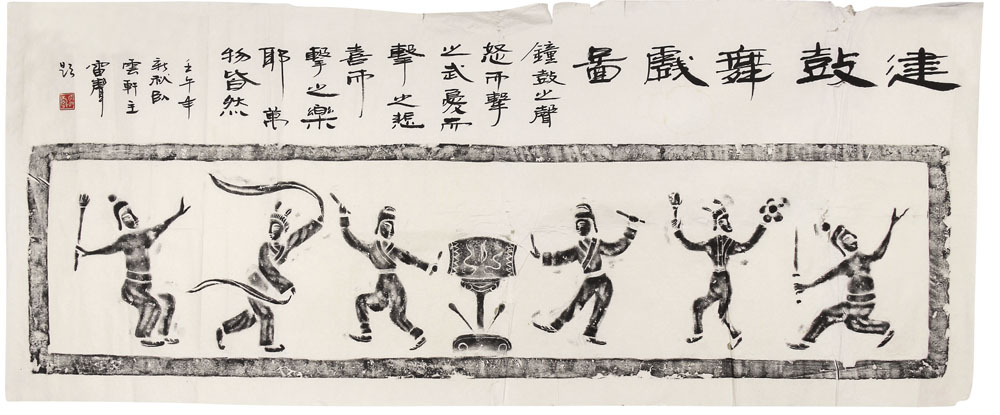 建鼓舞戲圖
鐘鼓之聲
怒而擊
之武憂而
擊之悲
喜而
擊之樂
耶萬
物皆然
壬午年
新秋臥
雲軒主
雷聲
题